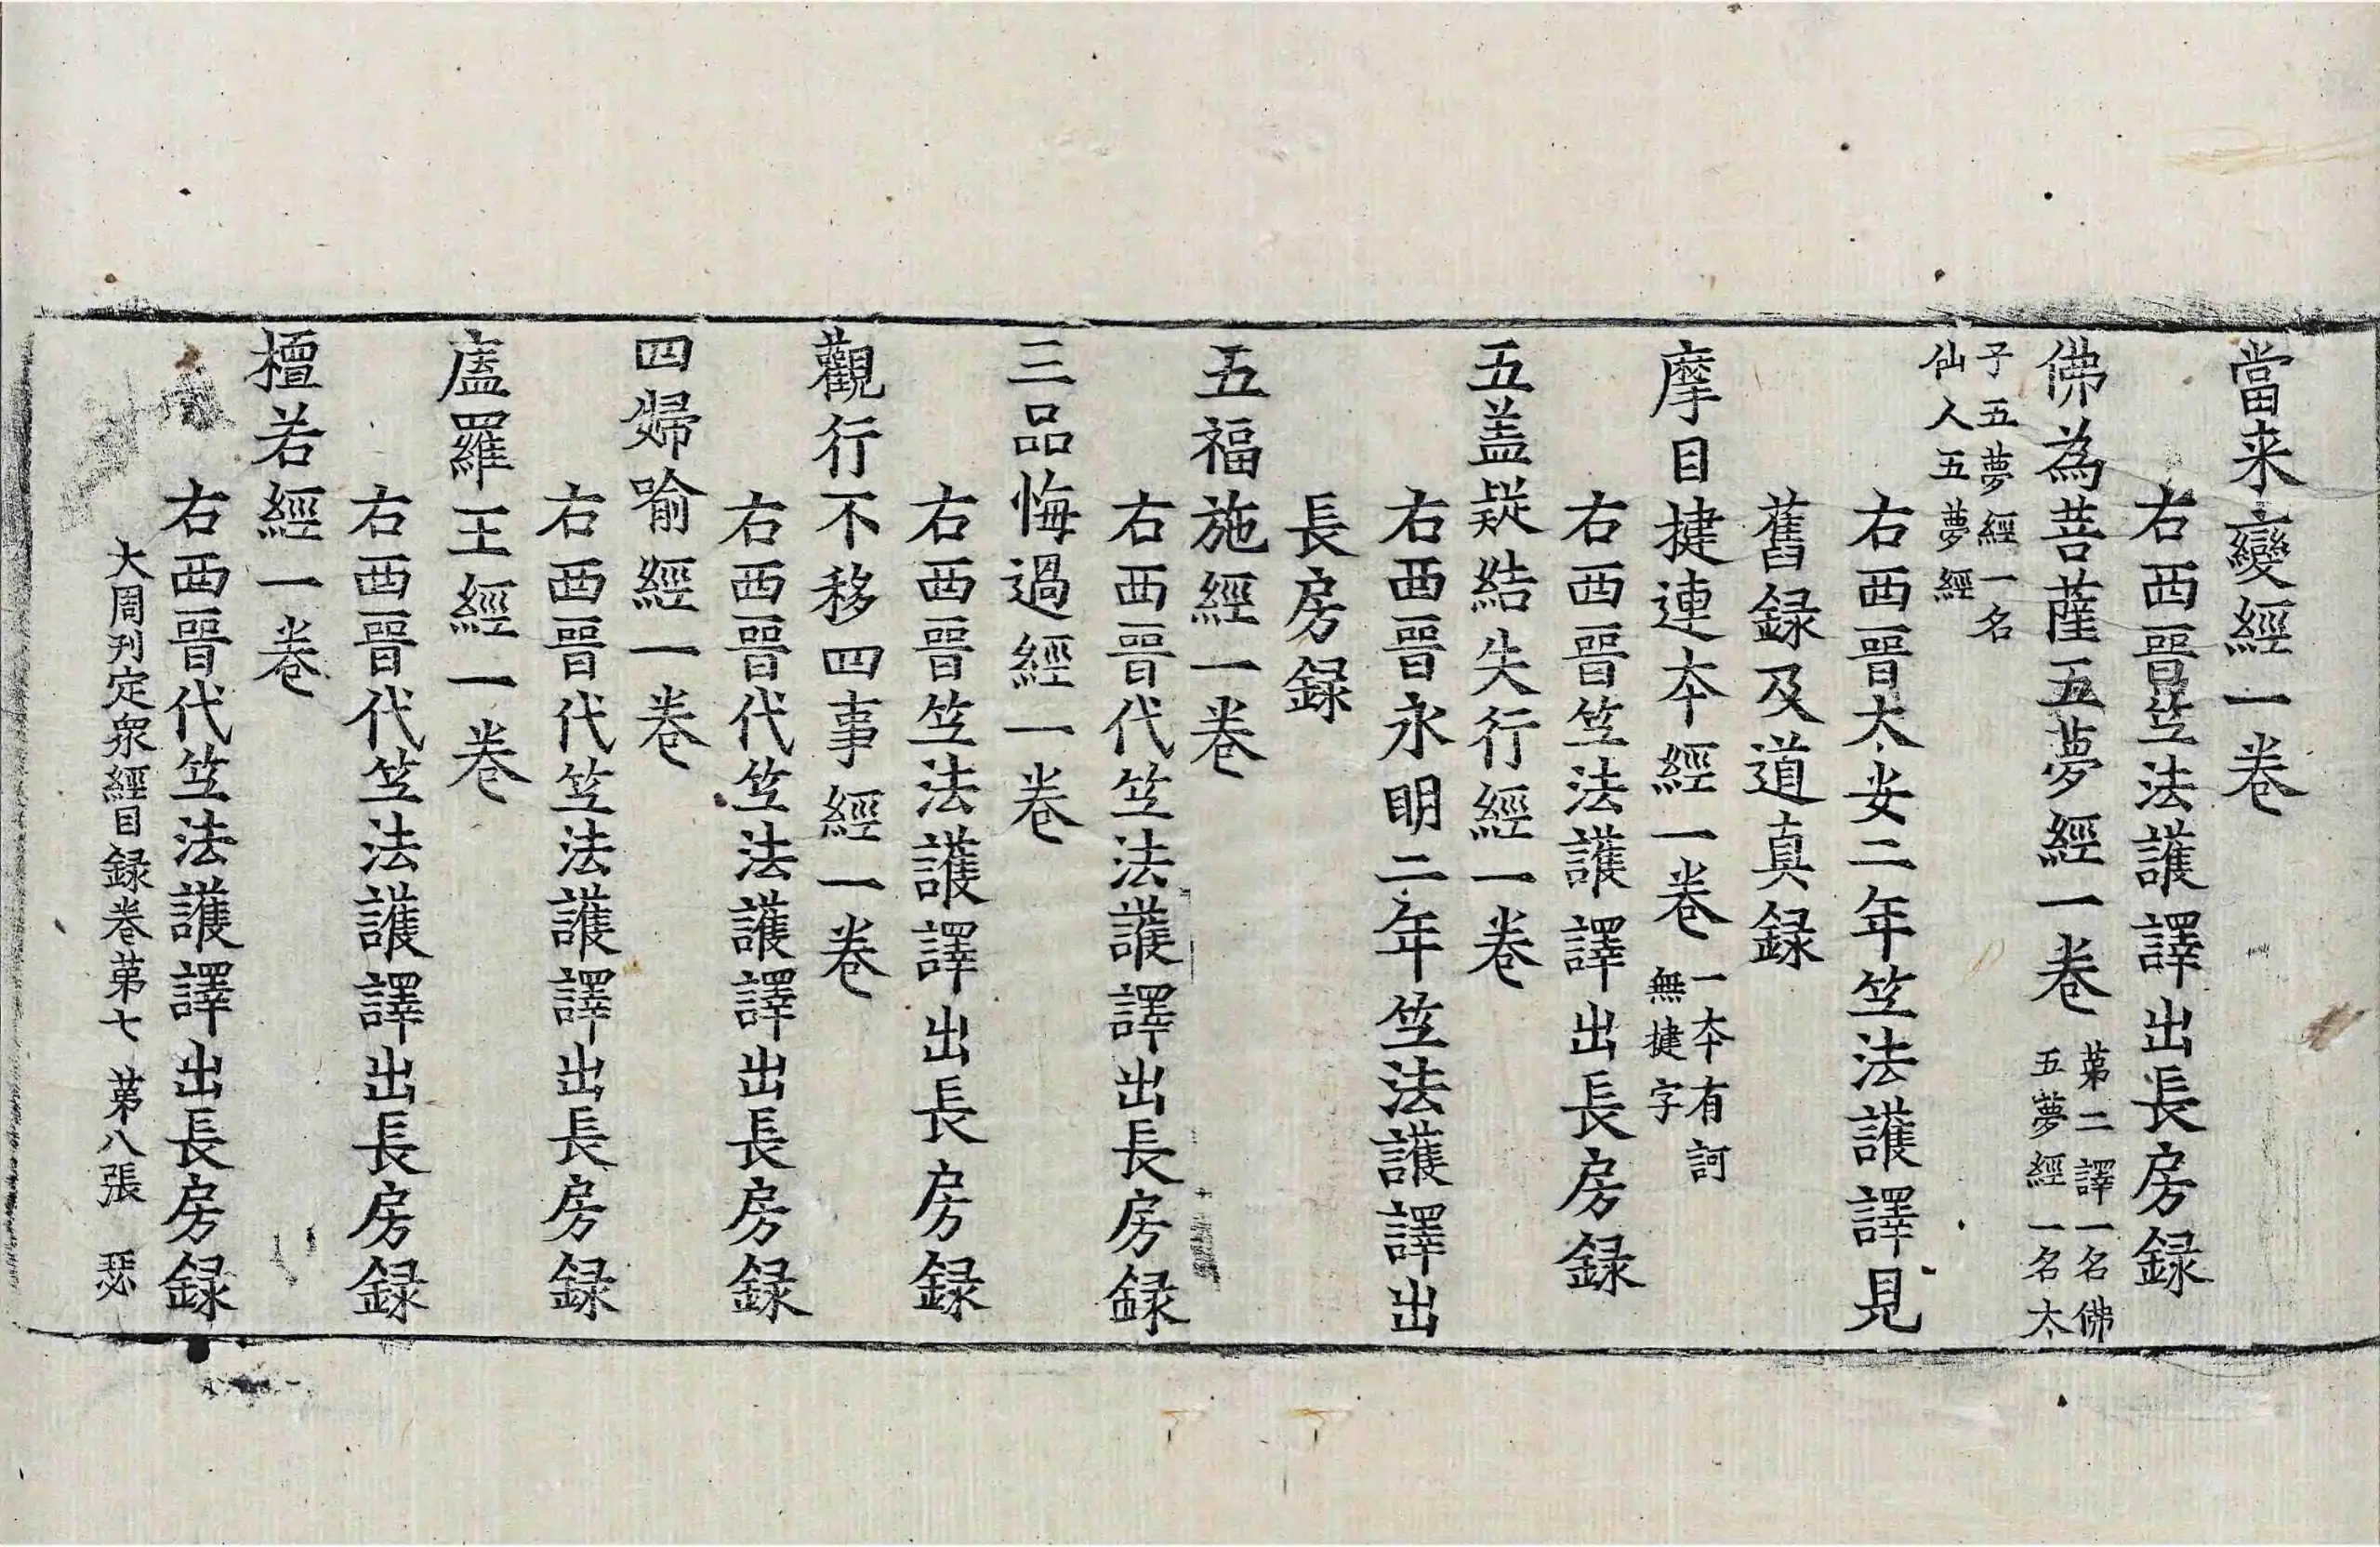 當来變經一卷
右西晉竺法護譯出長房録
佛為菩薩五夢經一卷 第二譯一名佛
五夢經一名太
子五夢經一名
仙人五夢經
右西晉太安二年竺法護譯見
舊録及道真録
摩目揵連本經一卷 一本有訶
無揵字
右西晉竺法護譯出長房録
五盖疑結失行經一卷
右西晉永明二年竺法護譯出
長房録
五福施經一卷
右西晉代竺法護譯出長房録
三品悔過經一卷
右西晉竺法護譯出長房録
觀行不移四事經一卷
右西晉代竺法護譯出長房録
四婦喻經一卷
右西晉代竺法護譯出長房録
廬羅王經一卷
右西晉代竺法護譯出長房録
檀若經一卷
右西晉代竺法護譯出長房録
大周刊定衆經目録卷第七 第八張 瑟